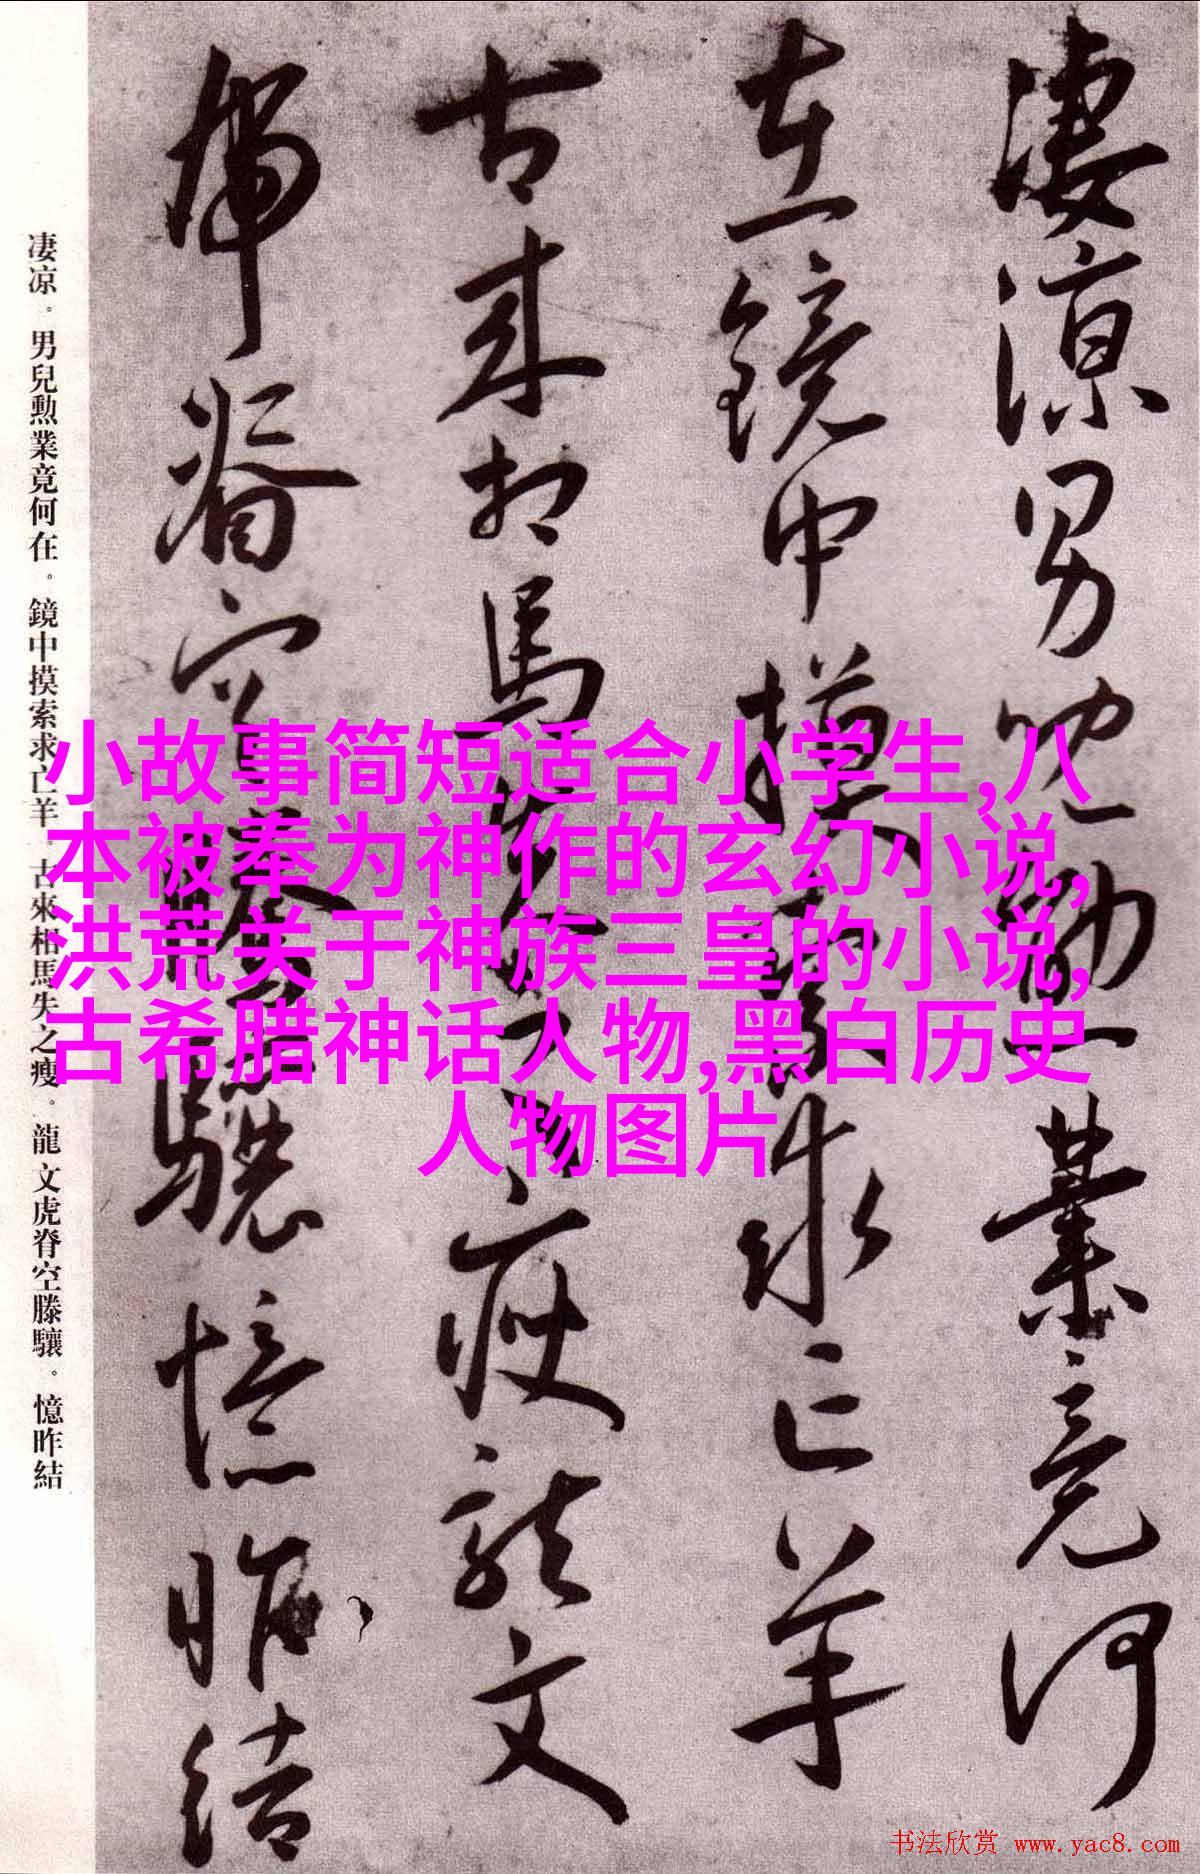 凄涼男兒勛業竟何
在鏡中摸索求亡羊
古来相馬失之瘦龍文
虎脊空騰驤憶昨結
凄凉。男兒勲業竟何在。鏡中摸索求亡羊。古來相馬失之瘦。龍文虎脊空滕驤。憶昨結
小故事简短适合小学生,八
本被奉为神作的玄幻小说,
洪荒关于神族三皇的小说,
古希腊神话人物,黑白历史
人物图片
书法欣赏 www.yac8.com